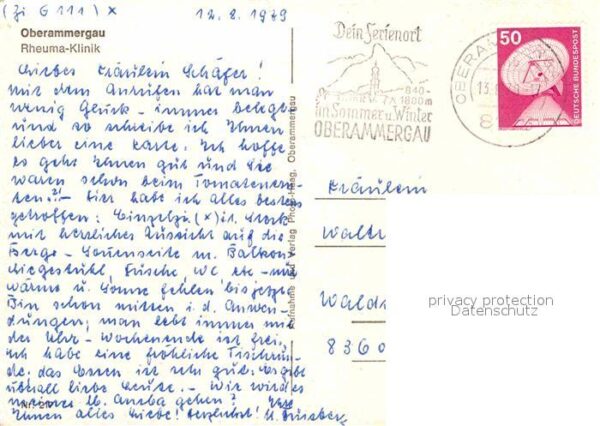 (Zi G 111) x 12.8.1979
Oberammergau
Rheuma-Klinik
Liebes Fräulein Schäfer!
mit dem Anrufen hat man
wenig Glück - immer belegt
und so schreibe ich Ihnen
lieber eine Karte. Ich hoffe
es geht Ihnen gut und Sie
waren schon beim Tomatenern-
ten?!- Hier habe ich alles bestens
getroffen: Einzelzi(x) 1. Stock
mit herrlicher Aussicht auf die
Berge - Sonnenseite m. Balkon
Liegestuhl, Dusche, WC etc - nur
wärme u. Sonne fehlen bis jetzt.
Bin schon mitten i. d. Anwen-
dungen; man lebt immer mit
der Uhr - Wochenende ist frei,
ich habe eine fröhliche Tischrun-
de, das Essen ist sehr gut. Es gibt
überall liebe Leute. - Wie wird es
meiner lb. gehen?
Ihnen alles Liebe! Herzlichst
Aufnahme und Verlag Photo-Haag, Oberammergau
Dein Ferienort
840-
1800m
im Sommer u. Winter
OBERAMMERGAU
OBERAM
13.
8
50
DEUTSCHE BUNDESPOST
Fräulein
Waltr
Walds
8360
privacy protection
Datenschutz